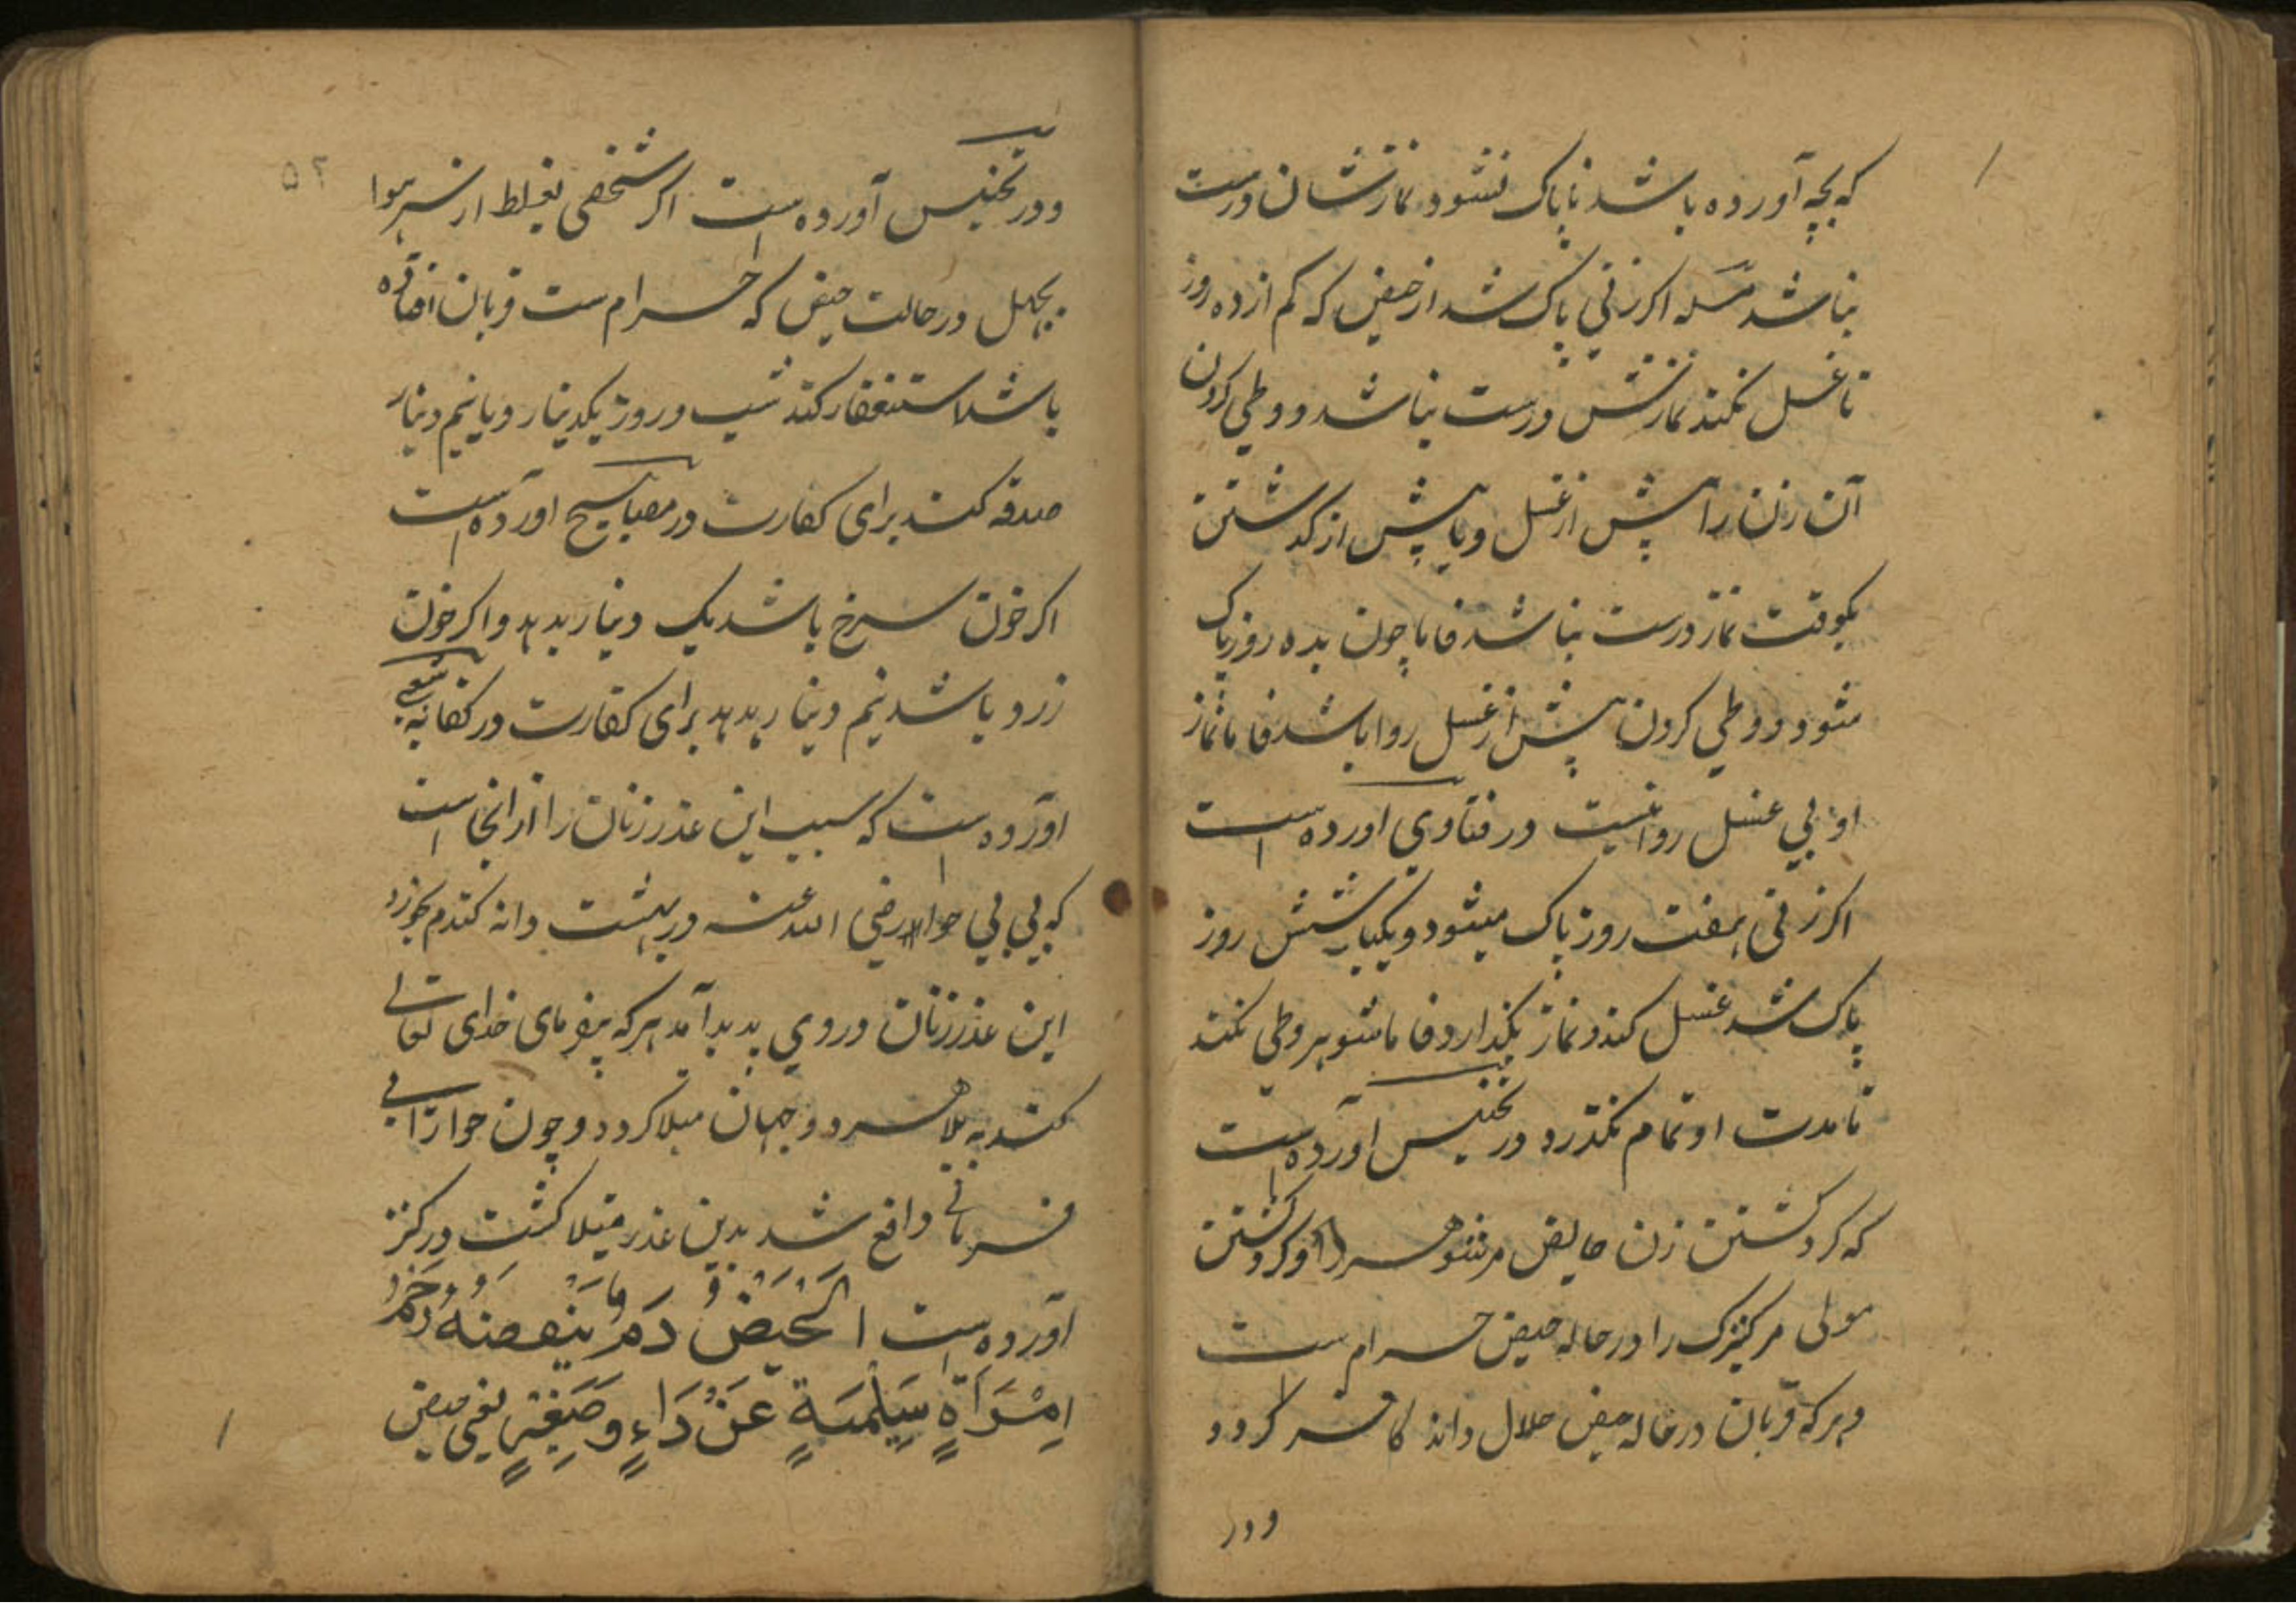 که بچه آورده باشد ناپاک نشود نمازشان درست
نباشد مسله اکر زنی پاک شد از حیض که کم از ده روز
تا غسل نکند نمازش درست نباشد و وطی کردن
آن زن را پیش از غسل و یا پیش از کذشتن
یکوقت نماز درست نباشد فاما چون بده روز پاک
شود و وطی کردن پیش از غسل روا باشد فاما نماز
او بی غسل روا نیست در فتاوی اورده است
اکر زنی بهفت روز پاک میشود و یکبار بشش روز
پاک شد غسل کند و نماز بکذارد فاما شوهر وطی نکند
تا مدت او تمام نکذرد در تجنیس اورده است
که کرد کشتن زن حایض مر شوهر را و کرد کشتن
مولی مر کنیزک را در حاله حیض حرام ست
و هر که قربان در حاله حیض حلال داند کافر کردد
و در
۵۲
و در تجنیس آورده است اکر شخصی بغلط از سر هوا
بجهل در حالت حیض که حرام ست قربان افتاده
باشد استغفار کند شب و روز یکدینار و یا نیم دینار
صدقه کند برای کفارت در مصابیح اورده است
اکر خون سرخ باشد یک دینار بدهد و اکر خون
زرد باشد نیم دینار بدهد برای کفارت در کفایه شعبی
اورده است که سبب این عذر زنان را از انجا است
که بی بی حوا رضی الله عنه در بهشت دانه کندم بخورد
این عذر زنان در وی پدید آمد هر که بیفرمای خدای تعالی
کند به بلا هر دو جهان مبتلا کردد و چون حوا را بی
فرمانی واقع شد بدین عذر مبتلا کشت در کنز
آورده است الْحَيْضُ دَمٌ يَنْفُضُهُ رَحِمُ
اِمْرَأَةٍ سَلِيمَةٍ عَنْ دَاءٍ وَصِغَرٍ یعنی حیض